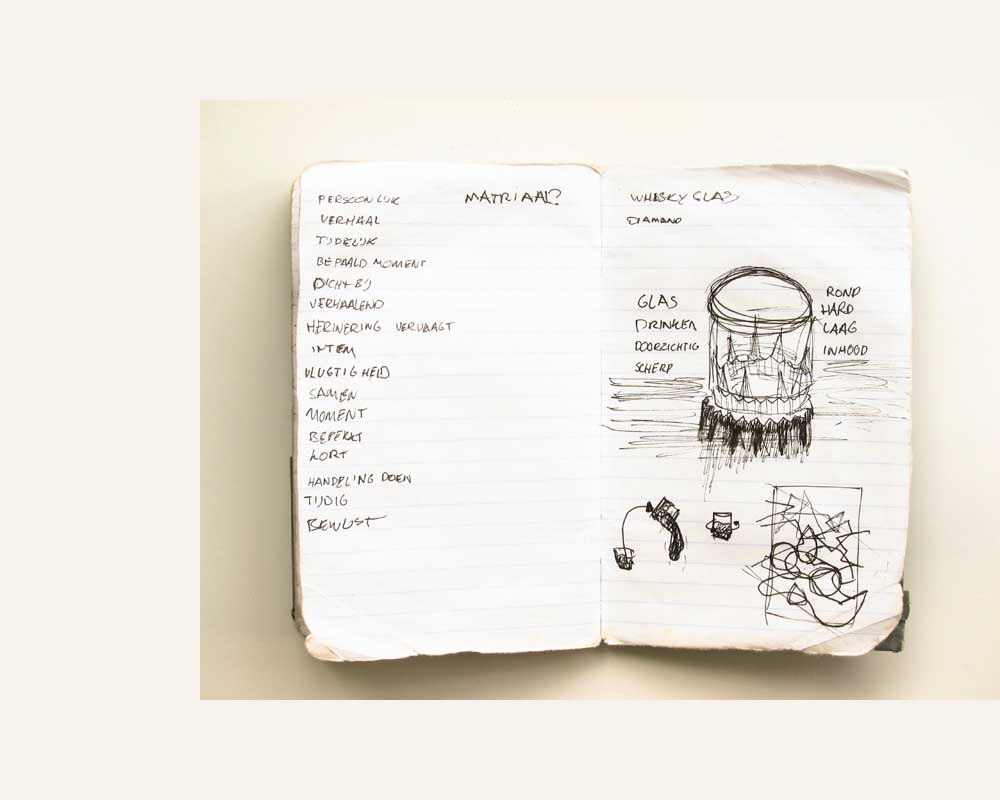 PERSOONLIJK
MATRIAAL?
VERHAAL
TIJDELIJK
BEPAALD MOMENT
DICHT BIJ
VERHAALEND
HERINERING VERVAAGT
INTEM
VLUGTIGHEID
SAMEN
MOMENT
BEPERKT
KORT
HANDELING DOEN
TIJDIG
BEWUST
WHISKY GLAS
DIAMAND
GLAS
DRINKEN
DOORZICHTIG
SCHERP
ROND
HARD
LAAG
INHOUD